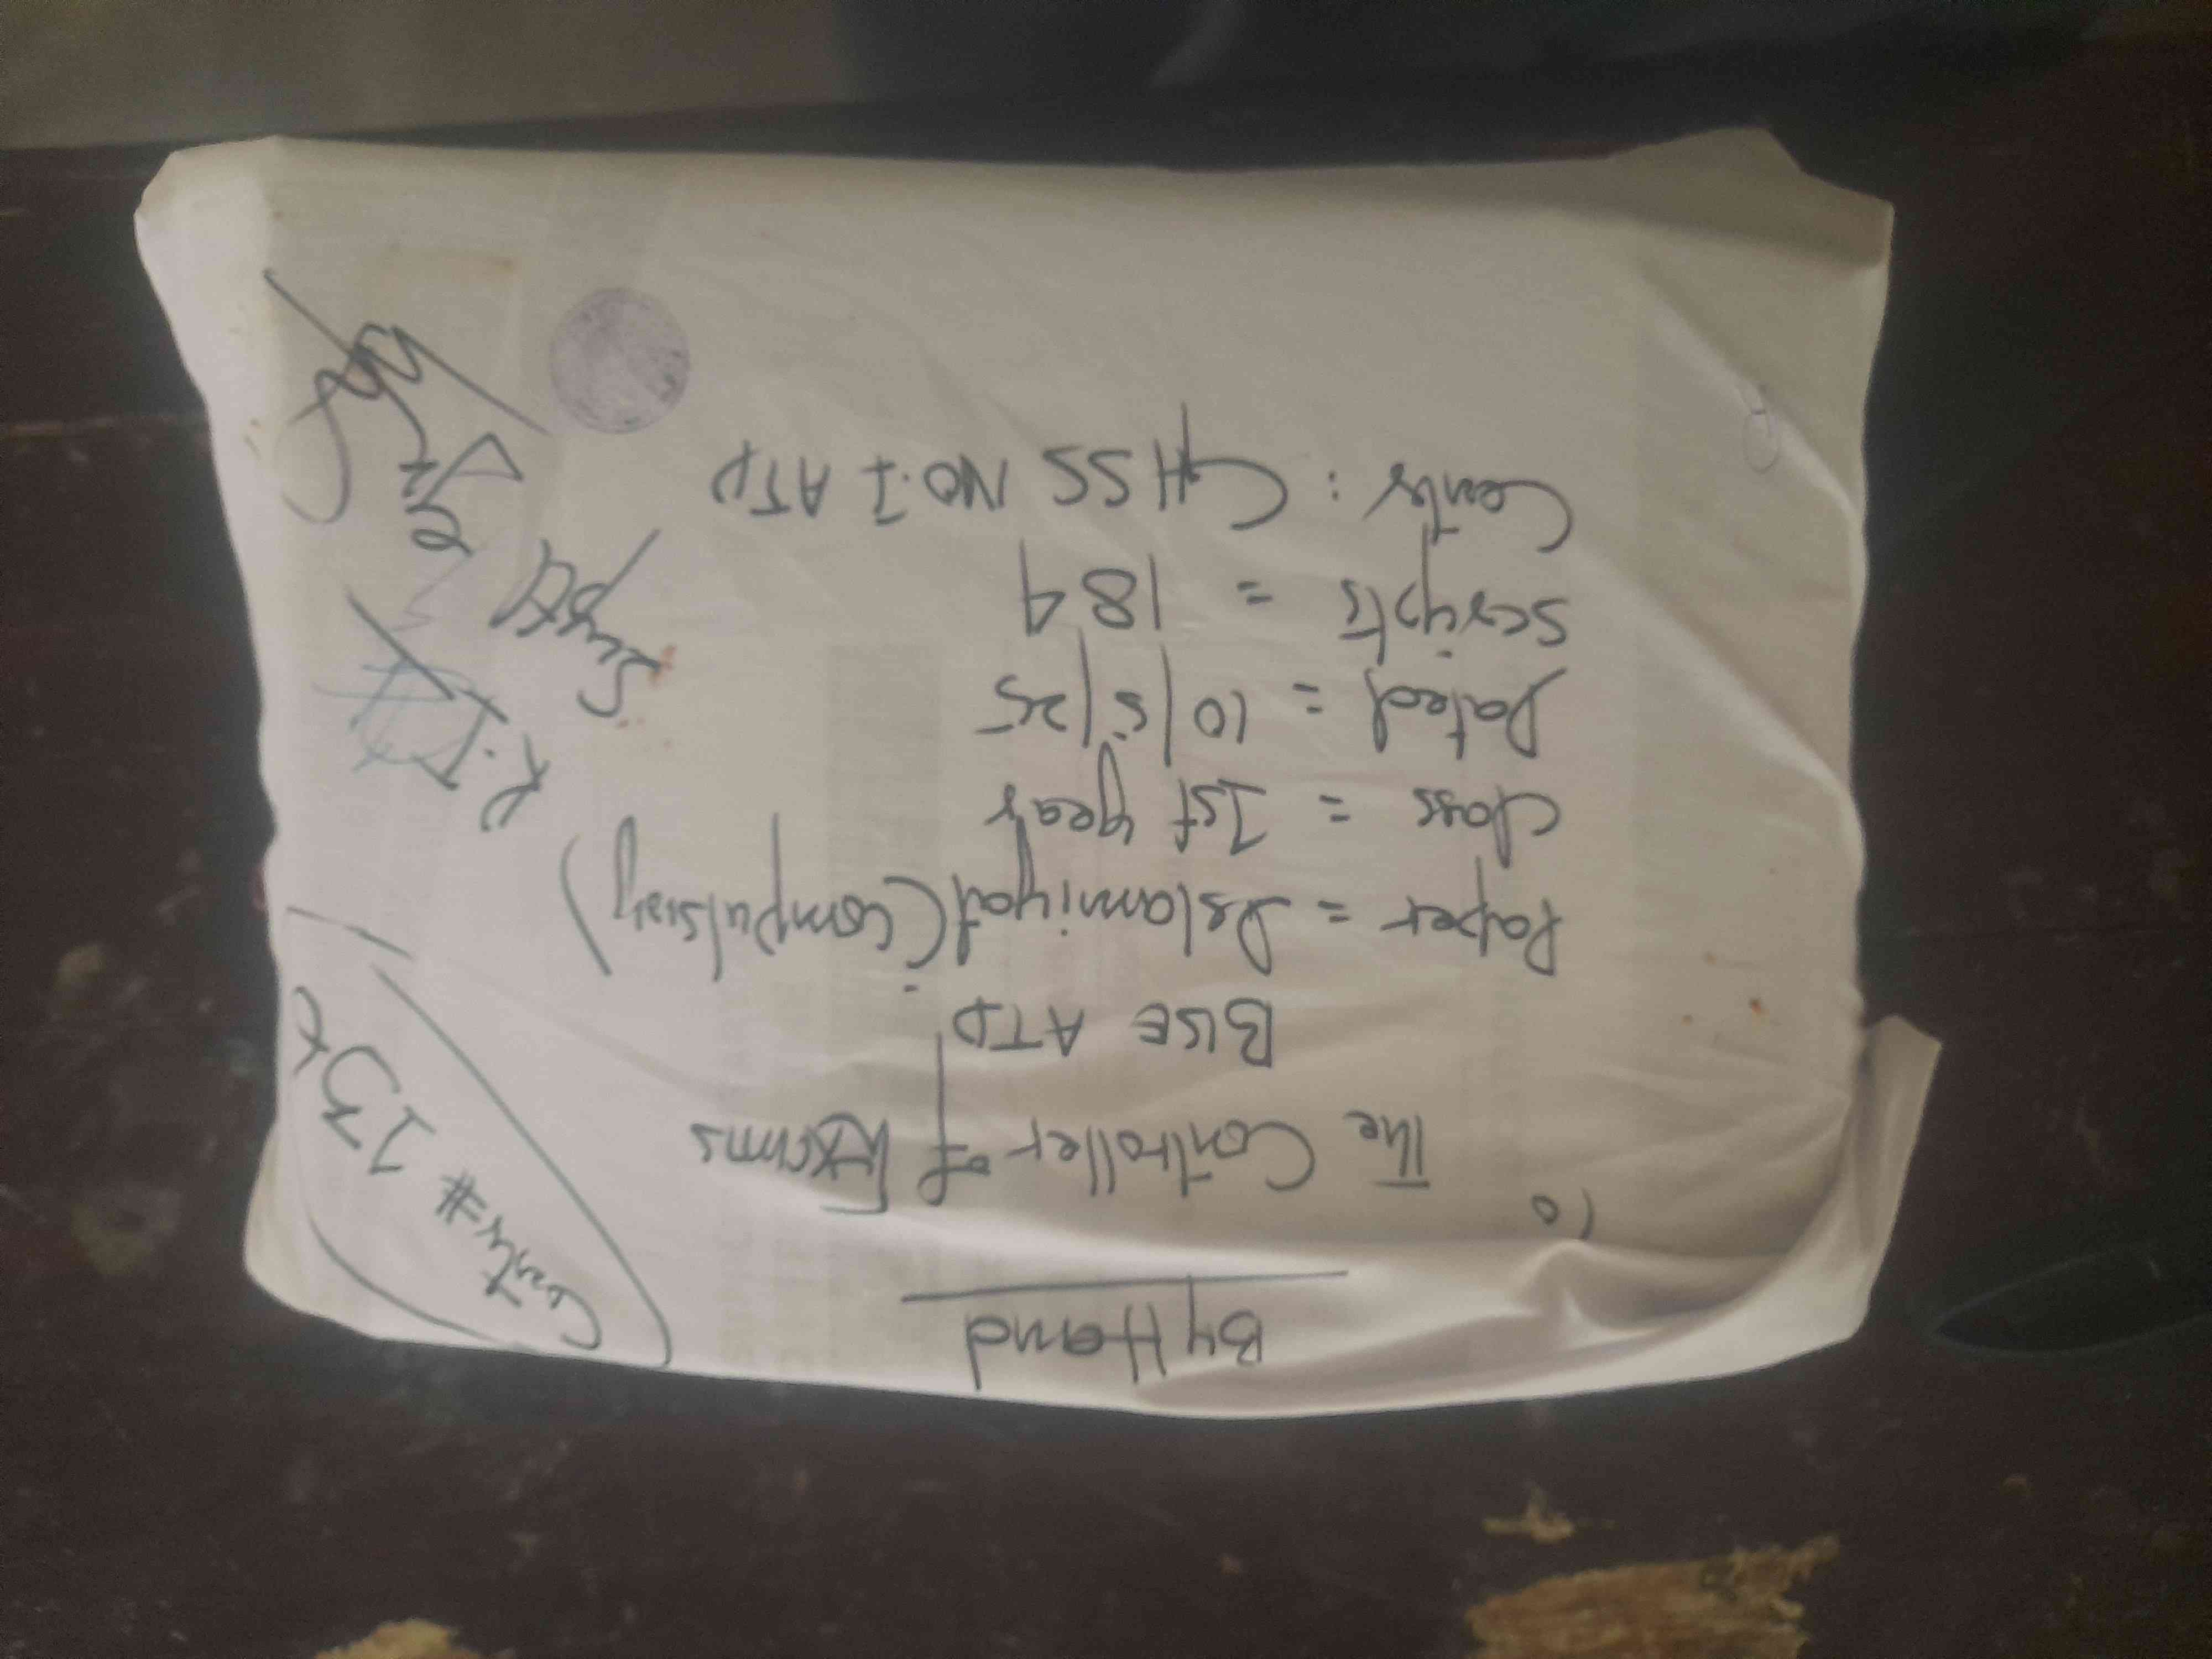 By Hand
Centre #
To
The Controller of Exams
BISE ATD
Paper = Islamiyat (Compulsory)
Class = 1st year
Dated = 10/5/25
Scripts = 184
Centre : GHSS NO.1 ATD
R.I
Supdt